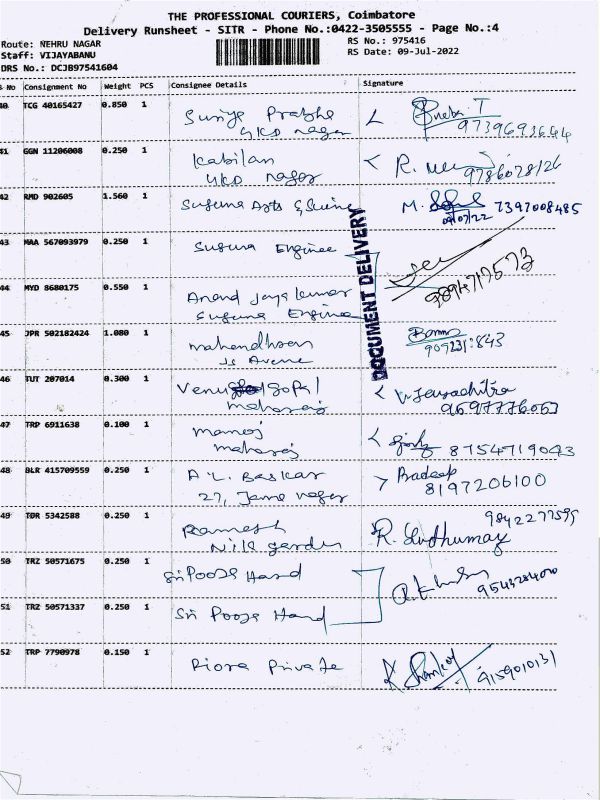 THE PROFESSIONAL COURIERS, Coimbatore
Delivery Runsheet - SITR - Phone No.:0422-3505555 - Page No.:4
Route: NEHRU NAGAR
RS No.: 975416
Staff: VIJAYABANU
RS Date: 09-Jul-2022
DRS No.: DCJB97541604
S No Consignment No Weight PCS Consignee Details Signature
40 TCG 40165427 0.850 1 Suriya Prabha
GKD nagar
9739693644
41 GGN 11206008 0.250 1 Kabilan
GKD nagar
R.
9786078126
42 RMD 902605 1.560 1 Suguna
M. 7397008485
09/07/22
43 MAA 567093979 0.250 1 Suguna Engine
9894717573
44 MYD 8680175 0.550 1 Anand Jaya kumar
Suguna Engine
DOCUMENT DELIVERY
45 JPR 502182424 1.080 1 mahendhran
Js Avenue
46 TUT 207014 0.300 1 Venugopal
maharaj
Vijayachitra
9597776053
47 TRP 6911638 0.100 1 manoj
maharaj
8754719043
48 BLR 415709559 0.250 1 A L. Baskar
27, Jame nagar
Pradeep
8197206100
49 TDR 5342588 0.250 1 Ramesh
Nila garden
9842277595
50 TRZ 50571675 0.250 1 Sri Pooja Hand
51 TRZ 50571337 0.250 1 Sri Pooja Hand
52 TRP 7790978 0.150 1 Piora Private
9159010131